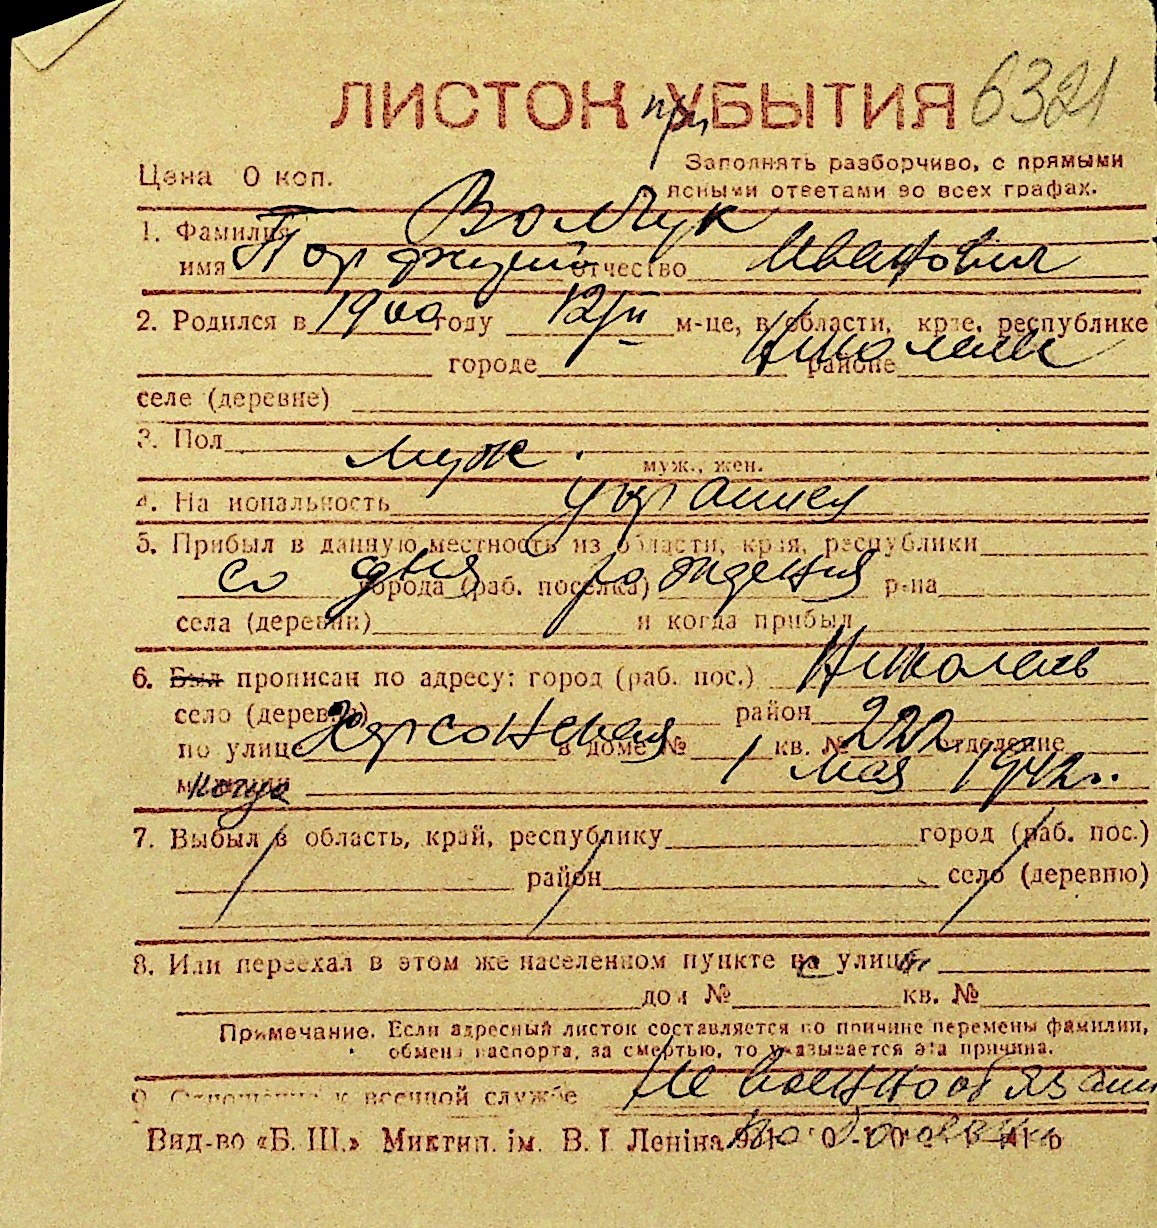 ЛИСТОК при УБЫТИЯ 6321
Цена 0 коп.
Заполнять разборчиво, с прямыми
и ясными ответами во всех графах.
1. Фамилия Волчук
имя отчество Иванович
2. Родился в 1900 году 12/II м-це, в области, крае, республике
городе Николаев районе
селе (деревне)
3. Пол муж.
муж., жен.
4. Национальность украинец
5. Прибыл в данную местность из области, края, республики
со дня рождения города (раб. поселка) р-на
села (деревни) и когда прибыл
6. Был прописан по адресу: город (раб. пос.) Николаев
село (деревня) район
по улице Херсонская в доме № кв. № 222 отделение
милиции когда 1 мая 1942 г.
7. Выбыл в область, край, республику город (раб. пос.)
район село (деревню)
8. Или переехал в этом же населенном пункте на улицу
дом № кв. №
Примечание. Если адресный листок составляется по причине перемены фамилии,
обмена паспорта, за смертью, то указывается эта причина.
9. Отношение к военной службе Не военнообязан
Вид-во «Б. Ш.» Миктип. ім. В. І Леніна